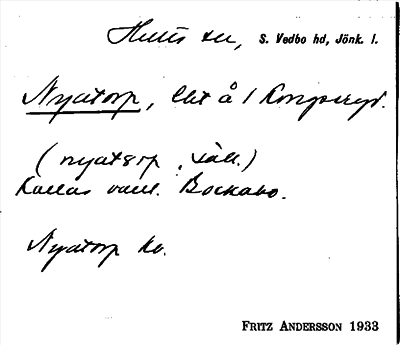 Hults sn, S. Vedbo hd, Jönk. l.
Nyatorp, lht å 1 Kongseryd.
(nyatorp, säll.)
Kallas vanl. Bockabo.
Nyatorp kv.
FRITZ ANDERSSON 1933